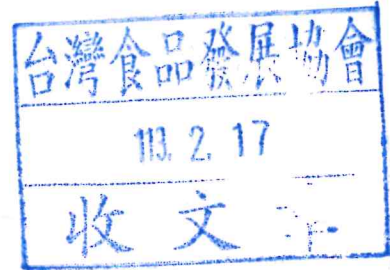 台灣食品發展協會
113. 2. 17
收文